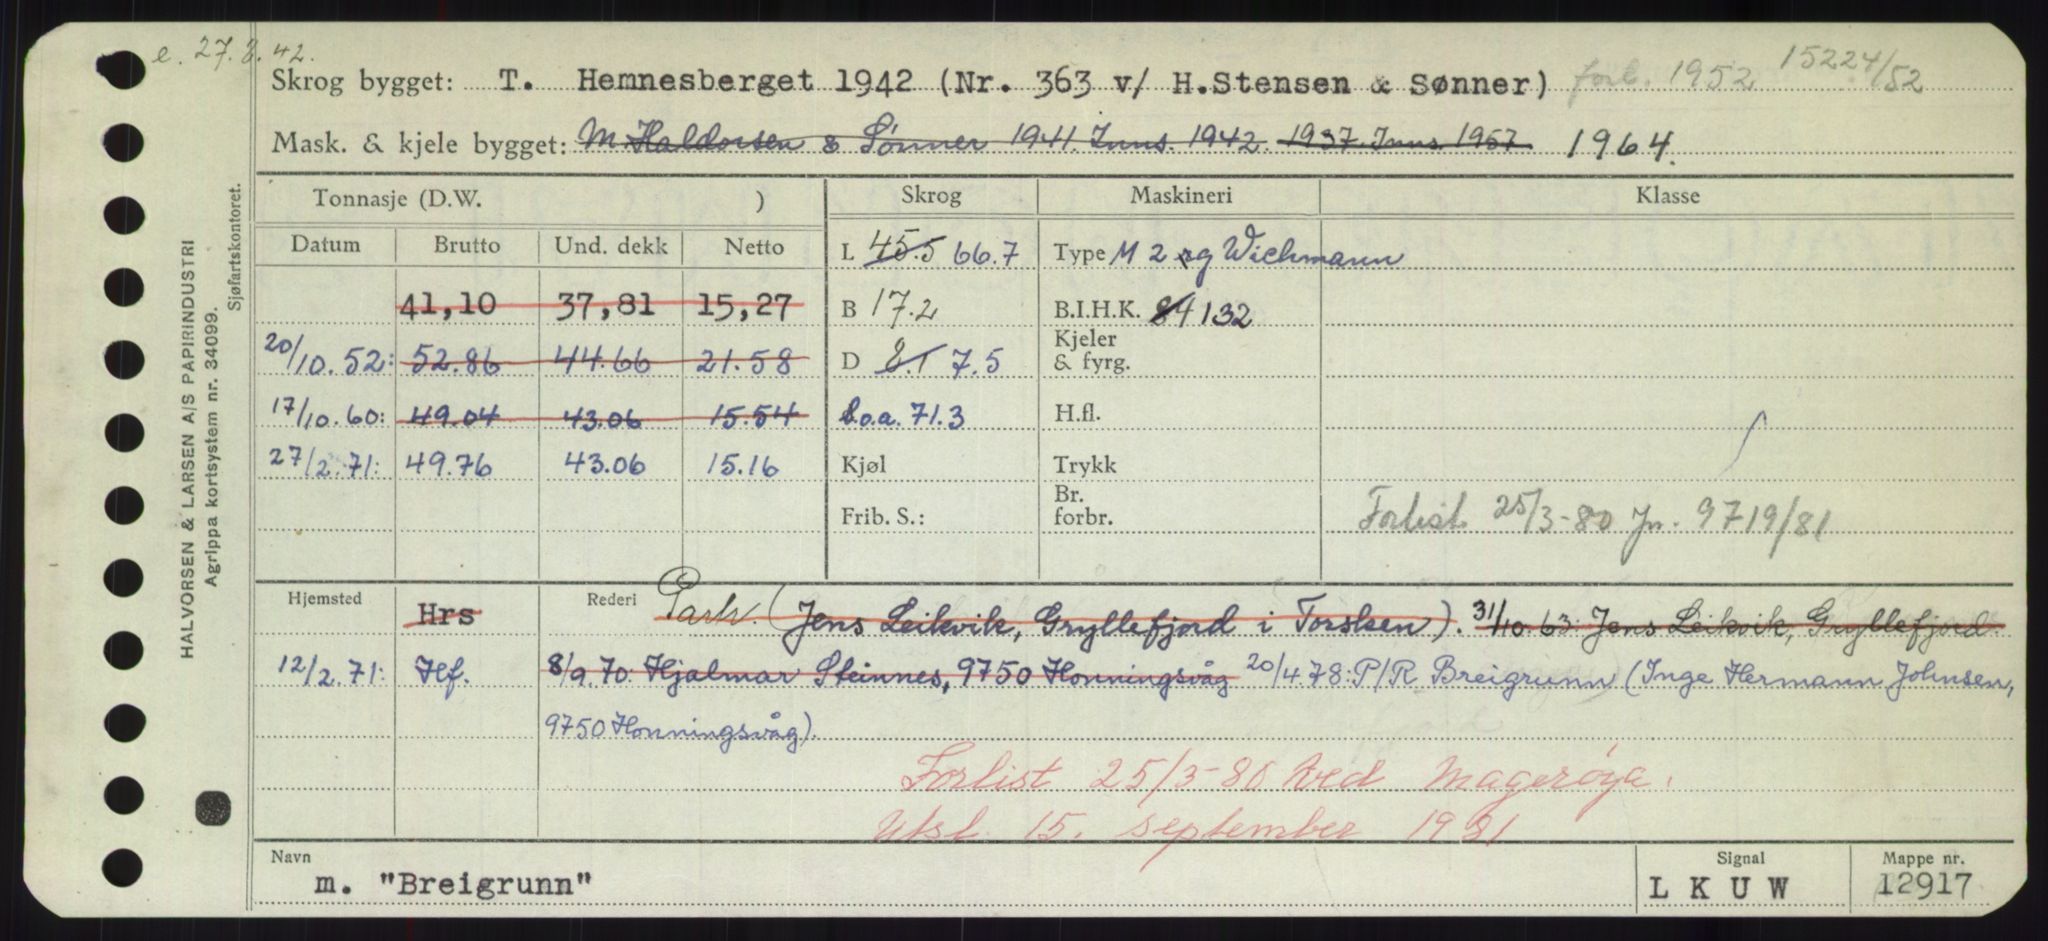 e. 27.3.42.
Skrog bygget: T. Hemnesberget 1942 (Nr. 363 v/ H.Stensen & Sønner) forl. 1952 15224/52
Mask. & kjele bygget: M Haldorsen & Sønner 1941. Inns. 1942. 1937. Inns 1957 1964.
Tonnasje (D.W. ) Skrog Maskineri Klasse
Datum Brutto Und. dekk Netto L 45.5 66.7 Type M 2 rg Wichmann
41,10 37,81 15,27 B 17.2 B.I.H.K. 84 132
20/10.52: 52.86 44.66 21.58 D 8.1 7.5 Kjeler & fyrg.
17/10.60: 49.04 43.06 15.54 l.o.a. 71.3 H.fl.
27/2.71: 49.76 43.06 15.16 Kjøl Trykk
Frib. S.: Br. forbr. Forlist 25/3-80 Jn. 9719/81
Hjemsted Hrs Rederi Partr. (Jens Leikvik, Gryllefjord i Torsken). 31/10.63: Jens Leikvik, Gryllefjord.
12/2.71: Hf. 8/9.70: Hjalmar Steinnes, 9750 Honningsvåg 20/4.78: P/R Breigrunn (Inge Hermann Johnsen,
9750 Honningsvåg).
Forlist 25/3-80 ved Magerøya.
Utsl. 15. september 1981
Navn Signal Mappe nr.
m. "Breigrunn" LKUW 12917
HALVORSEN & LARSEN A/S PAPIRINDUSTRI
Agrippa kortsystem nr. 34099.
Sjøfartskontoret.